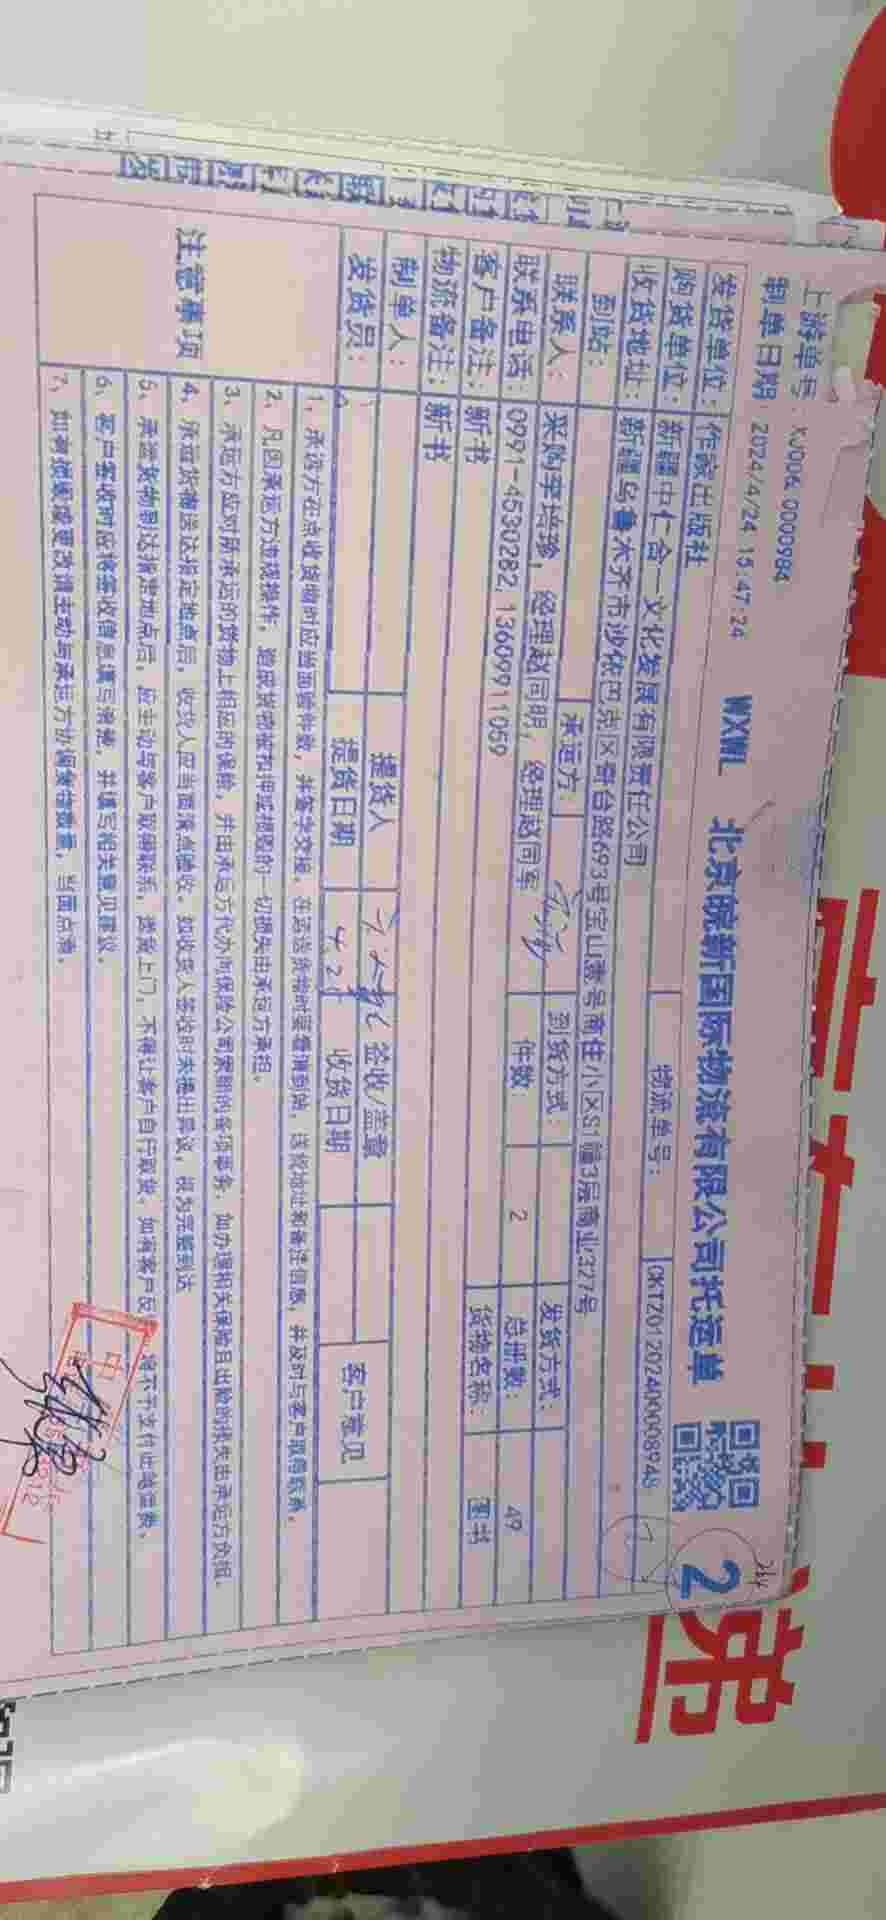 上游单号：XJ006 0000984
制单日期：2024/4/24 15:47:24
WXWL 北京皖新国际物流有限公司托运单
2
发货单位：作家出版社
物流单号：
CKTZ01202400008948
购货单位：新疆中仁合一文化发展有限责任公司
收货地址：新疆乌鲁木齐市沙依巴克区奇台路693号宝山壹号商住小区S1幢3层商业327号
到站：
承运方：
到货方式：
发货方式：
联系人：采购李培珍，经理赵同明，经理赵同军
件数：2
总册数：49
联系电话：0991-4530282, 13609911059
货物名称：图书
客户备注：新书
物流备注：新书
制单人：
提货人
签收/盖章
客户意见
发货员：
提货日期
4.25
收货日期
注意事项
1、承运方在点收货物时应当面验件数，并签字交接，在运送货物时要看清到站、送货地址和备注信息，并及时与客户取得联系。
2、凡因承运方违规操作，造成货物被扣押或损毁的一切损失由承运方承担。
3、承运方应对所承运的货物上相应的保险，并由承运方代办向保险公司索赔的各项事务，如办理相关保险且出险的损失由承运方负担。
4、承运货物送达指定地点后，收货人应当面清点验收。如收货人签收时未提出异议，视为完整到达
5、承运货物到达指定地点后，应主动与客户取得联系，送货上门，不得让客户自行取货。如有客户反 将不予支付此笔运费。
6、客户签收时应将签收信息填写清楚，并填写相关意见建议。
7、如有
中